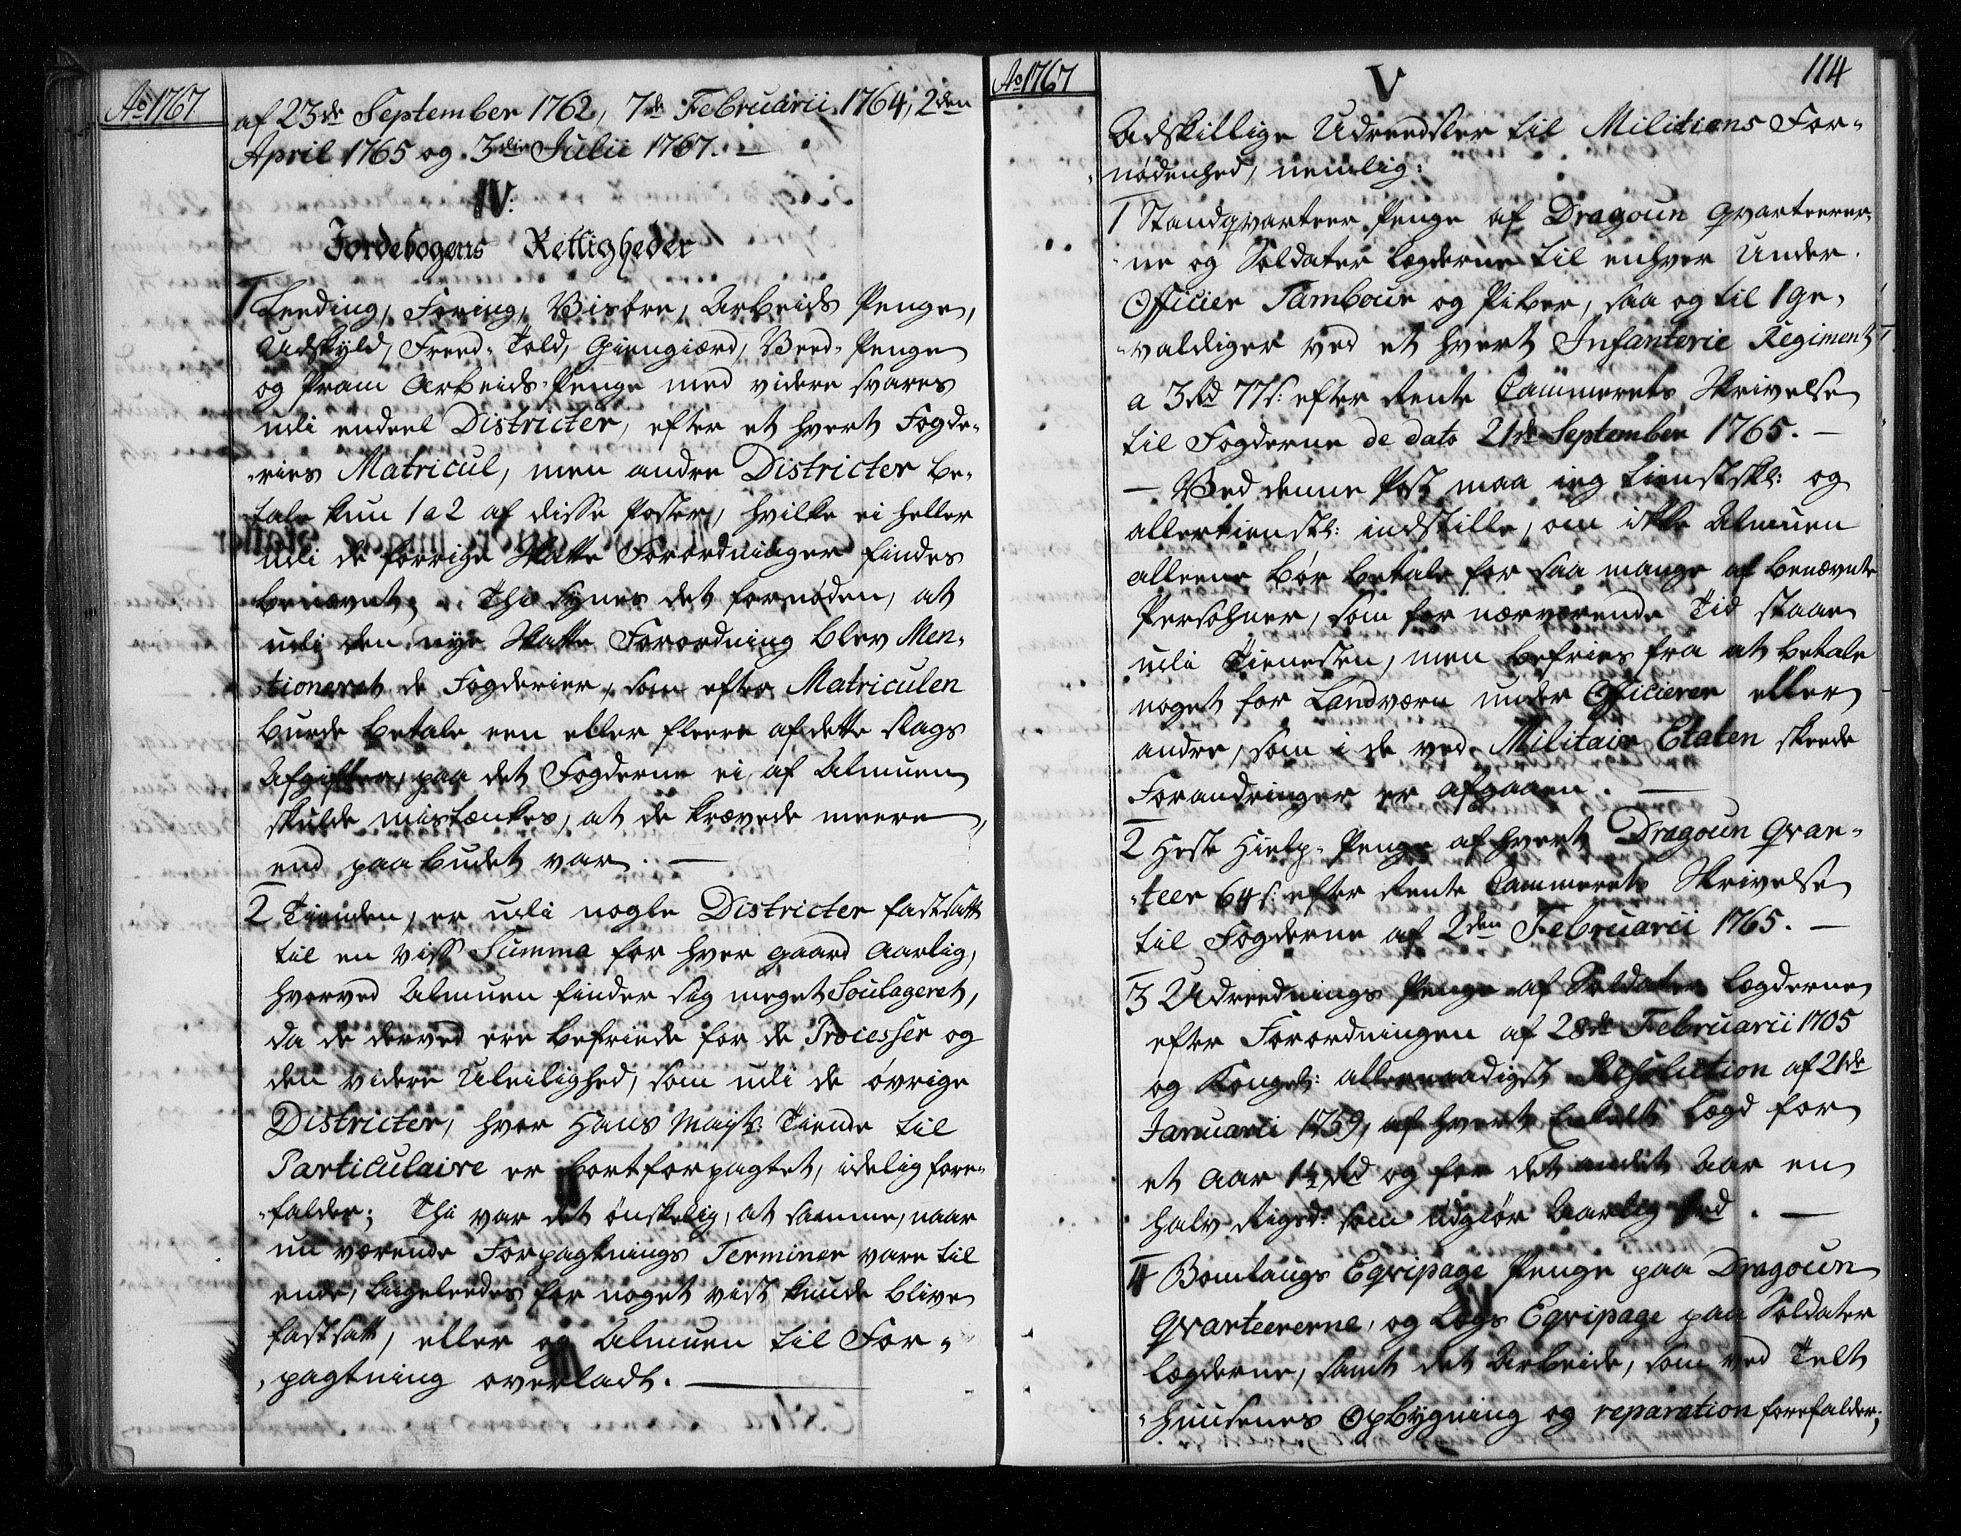 Ao 1767
af 23de September 1762, 7de Februarii 1764, 2den
April 1765 og 3die Julii 1767. —
IV:
Jordebogens Rettigheder
1 Leeding, Foring, Visøre, Arbeids Penge,
Udskyld, Freed-Told, Giengiærd, Veed-Penge
og Pram Arbeids-Penge med videre svares
udi endeel Districter, efter et hvert Fogde-
ries Matricul, men andre Districter be-
tale kun 1 a 2 af disse Poster, hvilke ei heller
udi de forrige Skatte Forordninger findes
benævnt; Thi synes det fornøden, at
udi den nye Skatte Forordning blev Men-
tioneret de Fogderier, som efter Matriculen
burde betale een eller fleere af dette slags
Afgifter, paa det Fogderne ei af Almuen
skulde mistænkes, at de krævede meere,
end paabudet var. —
2 Tienden, er udi nogle Districter fastsatt
til en viss Summa for hver gaard Aarlig,
hvorved Almuen finder sig meget Soulageret,
da de derved ere befriede for de Processer og
den videre Uleilighed, som udi de øvrige
Districter, hvor Hans Mayts: Tiende til
Particulaire er bortforpagtet, idelig fore-
falder; Thi var det ønskelig, at samme, naar
nu værende Forpagtnings Terminer vare til
ende, ligeleedes for noget vist kunde blive
fastsatt, eller og Almuen til For-
pagtning overladt. —
Ao 1767
114
V
Adskillige Udreedsler til Militiens For-
nødenhed, nemlig:
1 Standqvarteer Penge af Dragoun Qvarteerer-
ne og Soldater Lægderne til enhver Under
Officier Tambour og Piber, saa og til 1 Ge-
valdiger ved et hvert Infanterie Regiment
a 3Rd 77s: efter Rente Cammerets Skrivelse
til Fogderne de dato 21de September 1765. —
— Ved denne Post maa ieg tienstskl: og
allertienstl: indstille, om ikke Almuen
alleene bør betale for saa mange af benævnte
Persohner, som for nærværende Tid staar
udi Tienesten, men befries fra at betale
noget for Landværn under Officierer eller
andre, som i de ved Militair Etaten skeede
Forandringer er afgaaen. —
2 Heste Hielp-Penge af hvert Dragoun Qvar-
teer 64s: efter Rente Cammerets Skrivelse
til Fogderne af 2den Februarii 1765. —
3 Udreednings Penge af Soldater Lægderne
efter Forordningen af 28de Februarii 1705
og Kongel: allernaadigst Resolution af 21de
Januarii 1759, af hvert Enkelt Lægd for
et Aar 1½ Rd og for det andet Aar en
halv Rigsd: som udgiør Aarlig 1rd. —
4 Bomlaugs Eqvipage Penge paa Dragoun
Qvarteererne, og Lægs Eqvipage paa Soldater
Lægderne, samt det Arbeide, som ved Telt
Huusenes Opbygning og reparation forefalder;